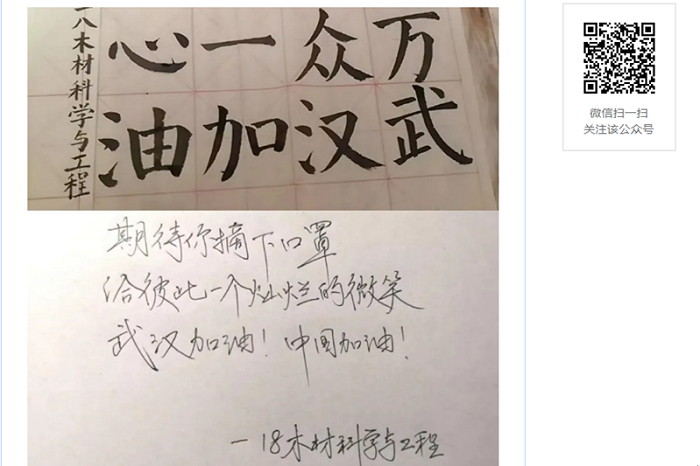 万众一心
武汉加油
一八木材科学与工程
期待你摘下口罩
给彼此一个灿烂的微笑
武汉加油！中国加油！
一18木材科学与工程
微信扫一扫
关注该公众号